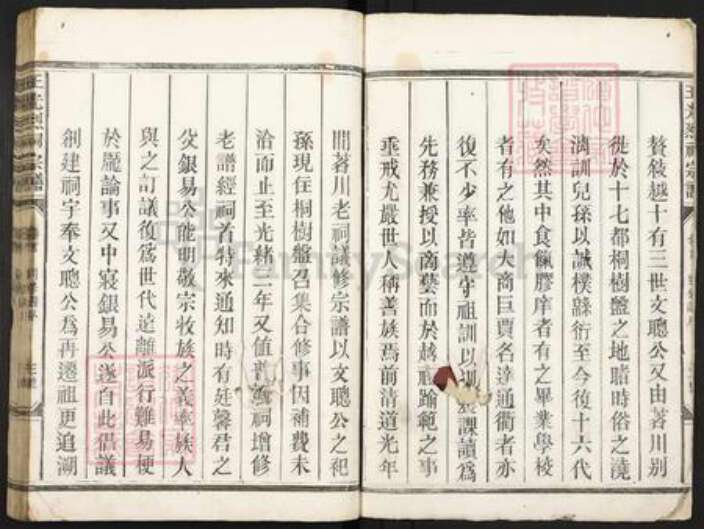 贅綾越十有三世文聰公又由茗川別
從於十七都桐樹盤之地睹時俗之澆
漓訓兒孫以誠樸繇衍至今後十六代
矣然其中食餼膠庠者有之畢業學校
者有之他如大商巨賈名達通衢者亦
復不少率皆遵守祖訓以訓農課讀為
先務兼授以商業而於越禮踰範之事
垂戒尤嚴世人稱善族焉前清道光年
間茗川老祠議修宗譜以文聰公之祀
孫現住桐樹盤召集合修事因補費未
洽而止至光緒二年又值 祠增修
老譜經祠首特來通知時有廷馨君之
父銀易公能明敬宗收族之義率族人
與之訂議後為世代遠離派行難易梗
於龐論事又中寢銀易公遂自此倡議
創建祠宇奉文聰公為再遷祖更追溯
FamilySearch